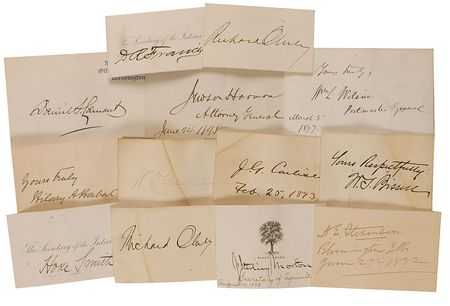 The Secretary of the Interior
D.R. Francis
Richard Olney
Washington
Daniel S. Lamont
Judson Harmon
Attorney General
June 24 1895
Yours truly,
Wm L. Wilson
Postmaster General
March 5
1897
Yours truly
Hilary A. Herbert
J.G. Carlisle
Feb. 25, 1893
Yours Respectfully
W.S. Bissell
The Secretary of the Interior
Hoke Smith
Richard Olney
PLANT TREES
J. Sterling Morton
Secretary of Agriculture
A E Stevenson
Bloomington Ills
June 27th 1892